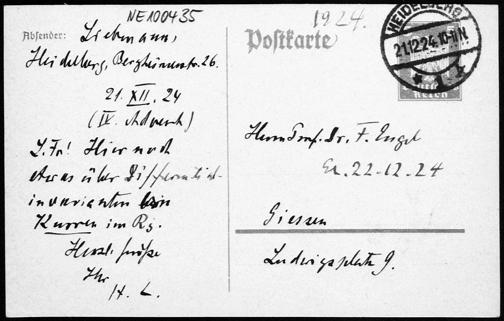 NE100435
1924.
Absender: Liebmann,
Heidelberg, Bergheimerstr. 26.
21. XII. 24
(IV. Advent)
L. Fr! Hier noch
etwas über Differential-
invarianten
Kurven im R3.
Herzl. Grüße
Ihr
H. L.
Postkarte
HEIDELBERG
21.12.24. 10-11 N
REICH
Herrn Prof. Dr. F. Engel
22-12-24
Giessen
Ludwigsplatz 9.